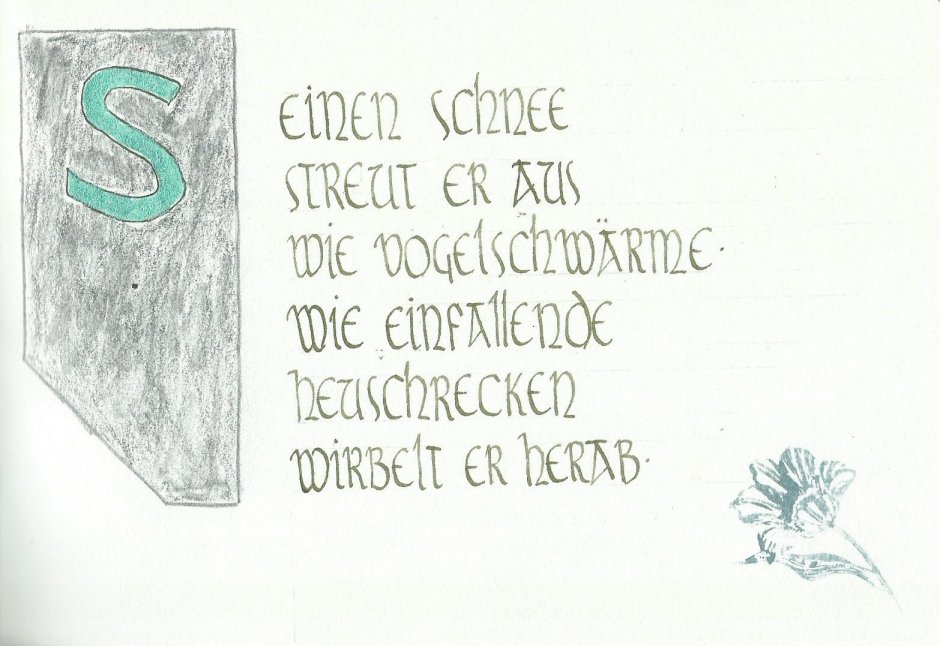 Seinen Schnee
streut er aus
wie Vogelschwärme.
Wie einfallende
Heuschrecken
wirbelt er herab.